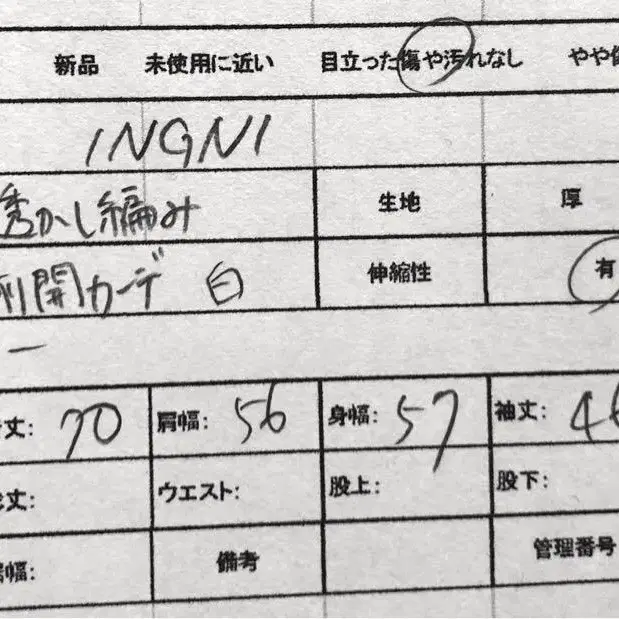 新品 未使用に近い 目立った傷や汚れなし やや
INGNI
透かし編み 生地 厚
前開カーデ 白 伸縮性 有
ー
丈: 70 肩幅: 56 身幅: 57 袖丈: 46
丈: ウエスト: 股上: 股下:
幅: 備考 管理番号